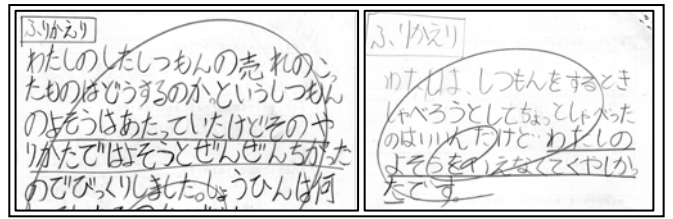 ふりかえり
わたしのしたしつもんの売れのこっ
たものはどうするのか。というしつもん
のよそうはあたっていたけどそのや
りかたではよそうとぜんぜんちがった
のでびっくりしました。しょうひんは何
ふりかえり
わたしは、しつもんをするとき
しゃべろうとしてちょっとしゃべった
のはいいんだけど…わたしの
よそうをいえなくてくやしかっ
たです。